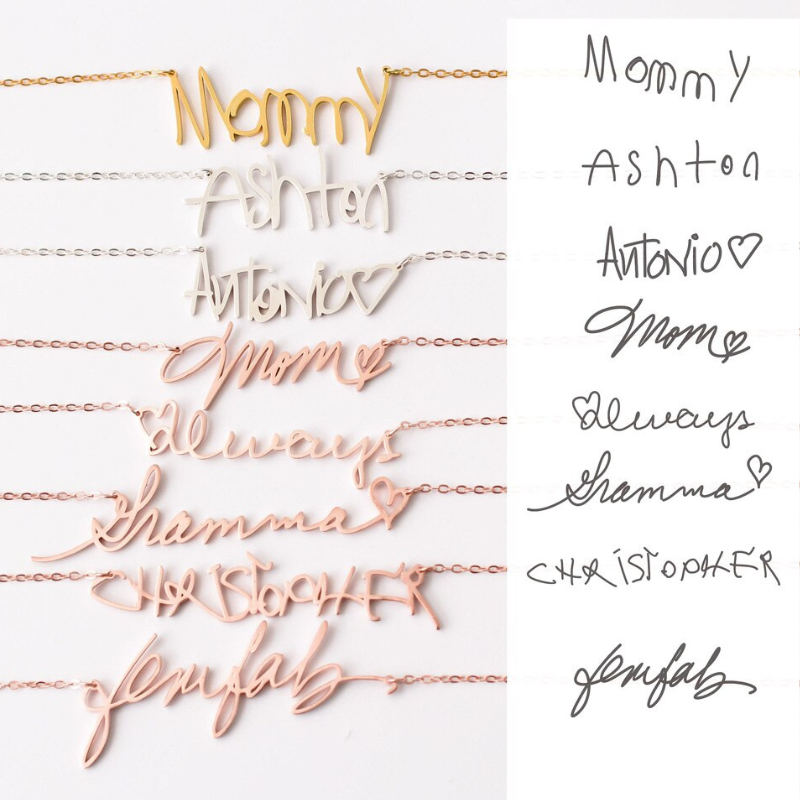 Mommy Mommy
Ashton Ashton
Antonio♡ Antonio♡
Mom♡ Mom♡
♡always ♡always
Gramma♡ Gramma♡
CHRiSTOPHER CHRiSTOPHER